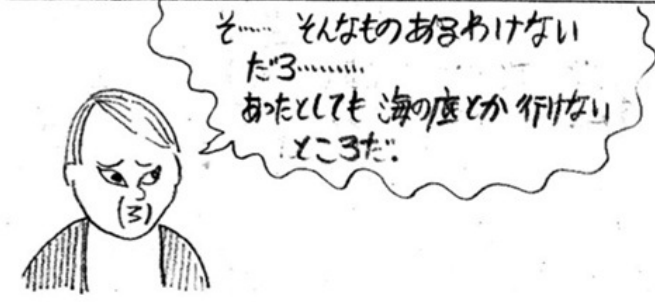 そ…… そんなものあるわけない
だろ………
あったとしても 海の底とか 行けない
ところだ.